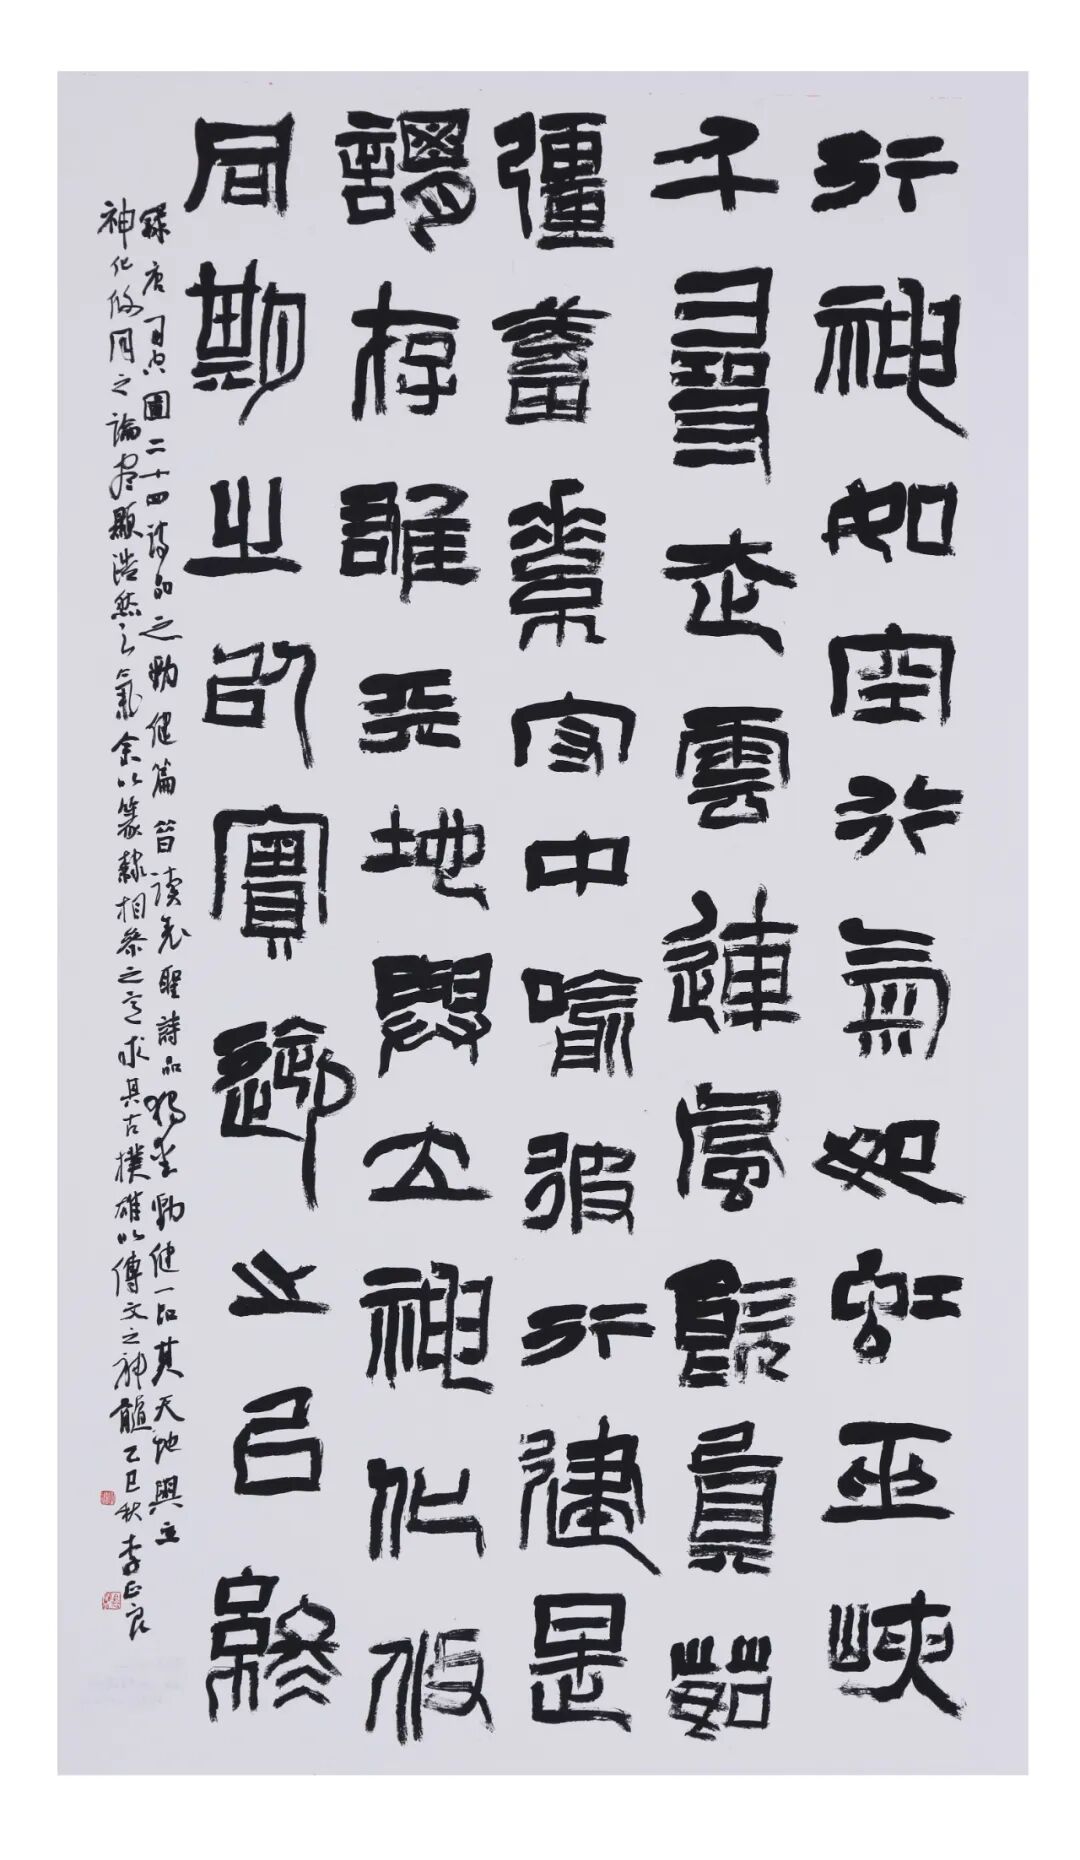 行神如空行氣如虹巫峽
千尋走雲連風飲真茹
彊蓄素守中喻彼行健是
謂存雄天地與立神化攸
同期之以實御之以終
錄唐司空圖二十四詩品之勁健篇昔讀表聖詩品獨愛勁健一品其天地與立
神化攸同之論盡顯浩然之氣余以篆隸相參之意求其古樸雄以傳文之神髓乙巳秋李正良